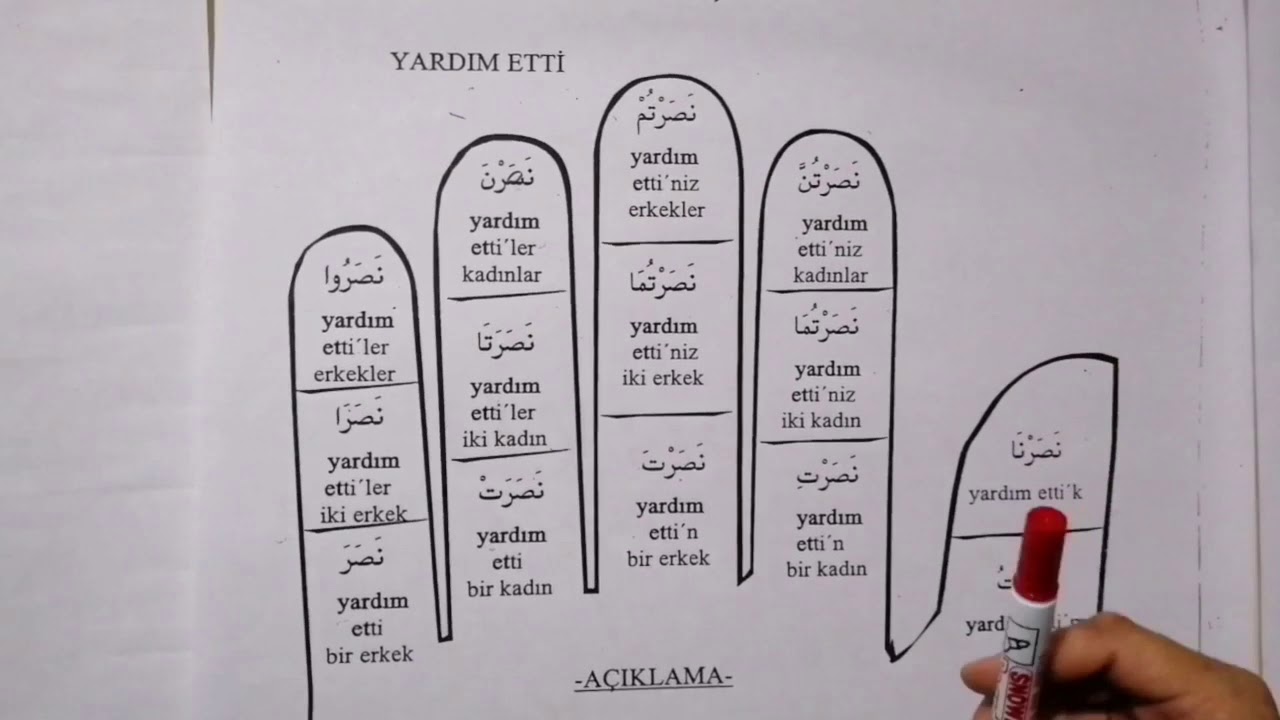 YARDIM ETTİ
نَصَرُوا
yardım
etti´ler
erkekler
نَصَرَا
yardım
etti´ler
iki erkek
نَصَرَ
yardım
etti
bir erkek
نَصَرْنَ
yardım
etti´ler
kadınlar
نَصَرَتَا
yardım
etti´ler
iki kadın
نَصَرَتْ
yardım
etti
bir kadın
نَصَرْتُمْ
yardım
etti´niz
erkekler
نَصَرْتُمَا
yardım
etti´niz
iki erkek
نَصَرْتَ
yardım
etti´n
bir erkek
نَصَرْتُنَّ
yardım
etti´niz
kadınlar
نَصَرْتُمَا
yardım
etti´niz
iki kadın
نَصَرْتِ
yardım
etti´n
bir kadın
نَصَرْنَا
yardım etti´k
-AÇIKLAMA-
A
SNOW